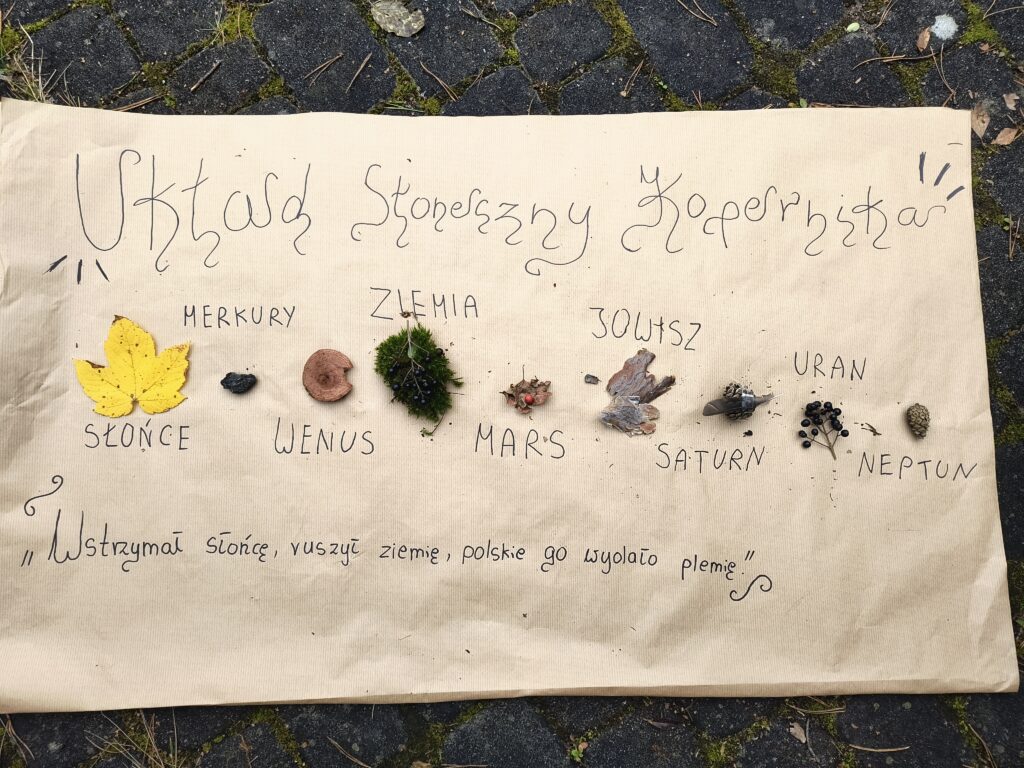 Układ Słoneczny Kopernika
MERKURY ZIEMIA JOWISZ URAN
SŁOŃCE WENUS MARS SATURN NEPTUN
„Wstrzymał słońcę, ruszył ziemię, polskie go wydało plemię.”